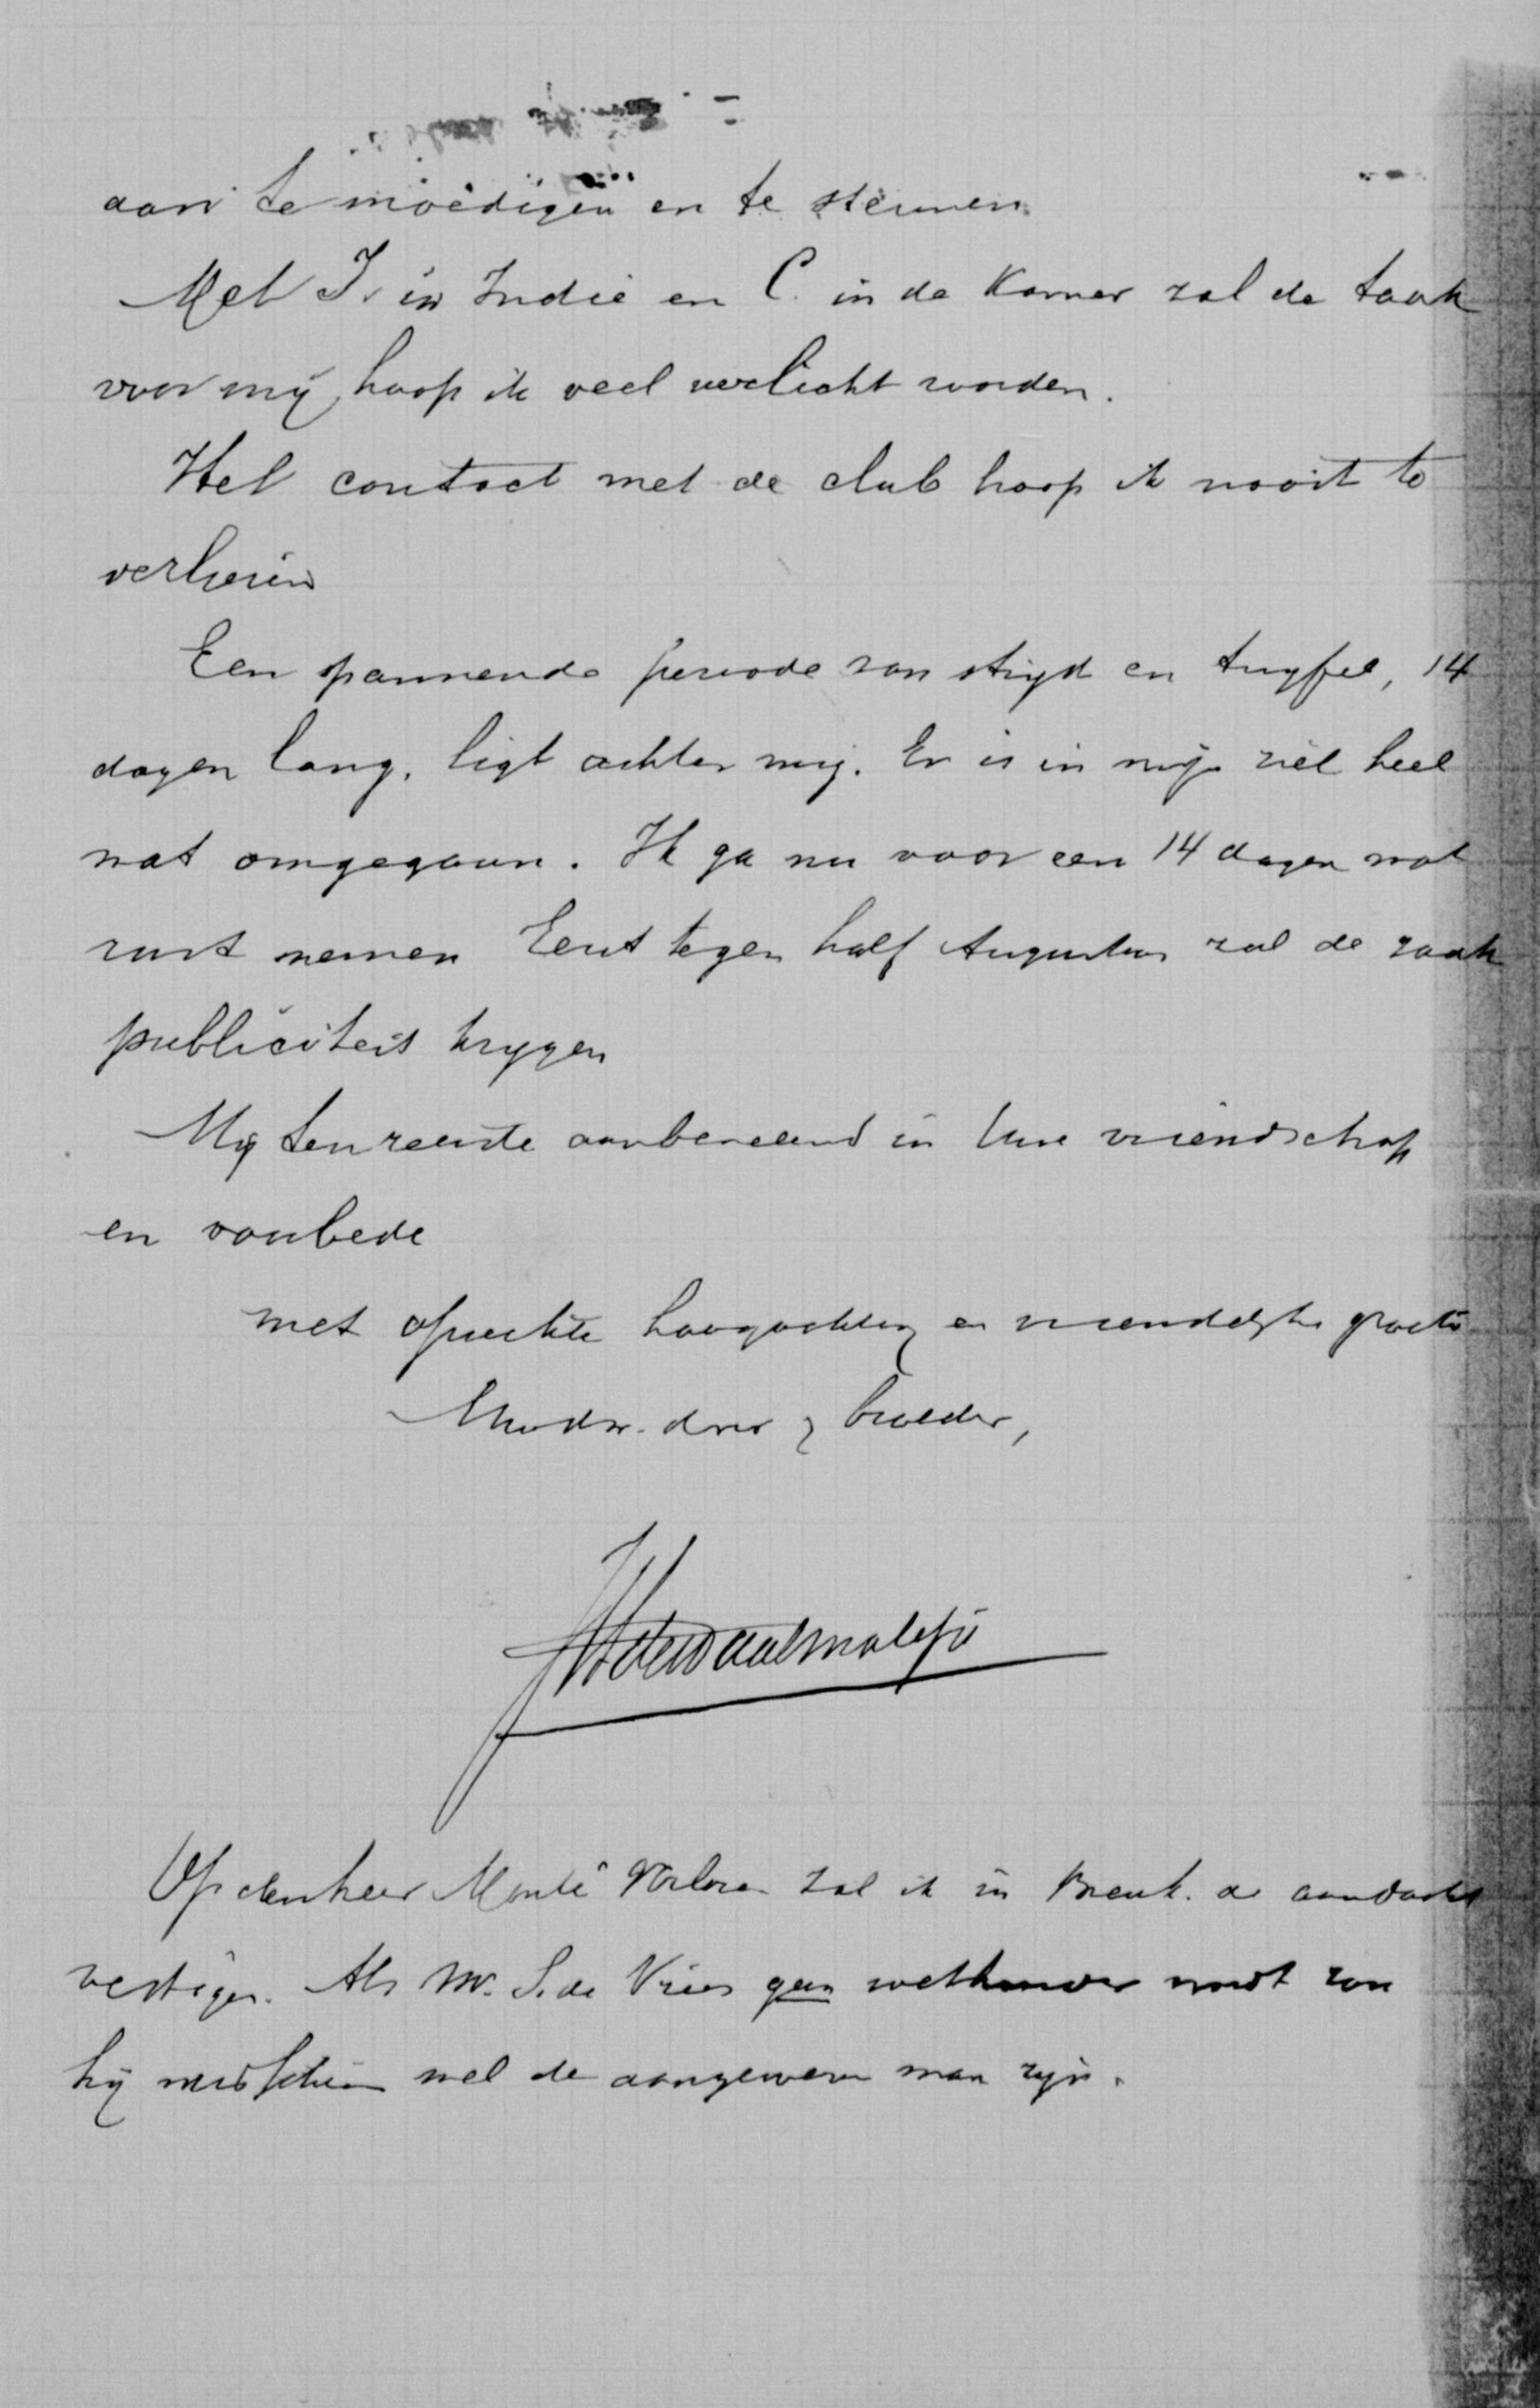 aan te moedigen en te steunen.
Met I. in Indie en C. in de Kamer zal de taak
voor mij, hoop ik veel verlicht worden.
Het contact met de club hoop ik nooit te
verliezen
Een spannende periode van strijd en twyfel, 14
dagen lang, ligt achter mij. Er is in mijn ziel heel
wat omgegaan. Ik ga nu voor een 14 dagen wat
rust nemen Eerst tegen half Augustus zal de zaak
publiciteit krygen
Mij ten zeerste aanbevelend in Uwe vriendschap
en voorbede
met oprechte hoogachting en vriendelyke groete
dw. en broeder,
Op den heer Monté Verloren zal ik in Breuk. de aandacht
vestigen. Als Mr. S. de Vries geen wethouder wordt zou
hij misschien wel de aangewezen man zijn.